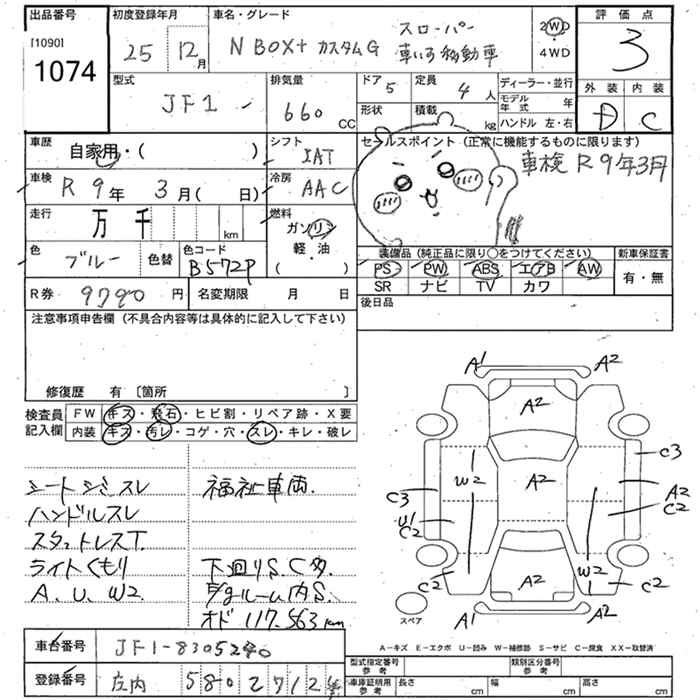 出品番号
[1090]
1074
初度登録年月
25 12月
車名・グレード
N BOX+ カスタムG
スローパー
車いす移動車
2WD
・
4WD
評価点
3
外装 内装
D C
型式
JF1
排気量
660 CC
ドア 5
定員 4人
形状
積載 kg
ディーラー・並行
モデル年式 年
ハンドル 左・右
車歴
自家用・( )
シフト
IAT
セールスポイント (正常に機能するものに限ります)
車検 R9年3月
車検
R 9年 3月( 日)
冷房
AAC
走行
万 千 km
燃料
ガソリン
軽・油
( )
色
ブルー
色替
色コード
B572P
装備品 (純正品に限り○をつけてください)
PS PW ABS エアB AW
SR ナビ TV カワ
新車保証書
有・無
R券 9790円
名変期限 月 日
後日品
注意事項申告欄 (不具合内容等は具体的に記入して下さい)
修復歴 有 〔箇所 〕
検査員記入欄
FW キズ・飛石・ヒビ割・リペア跡・X要
内装 キズ・汚レ・コゲ・穴・スレ・キレ・破レ
シートシミスレ
ハンドルスレ
スタットレスT.
ライトくもり
A、U、W2
福祉車両.
下廻りS.C多
Egルーム内S.
オド 117.563km
A1 A2
A2
C3
W2 A2 A2
C3 C2
U1
C2
W2
C2 A2 C2
A1 A2
スペア
A-キズ E-エクボ U-凹み W-補修跡 S-サビ C-腐食 XX-取替済
車台番号 JF1-8305290
登録番号 庄内 580 2712
型式指定番号 参考
類別区分番号 参考
車庫証明用 参考
長さ cm
幅 cm
高さ cm